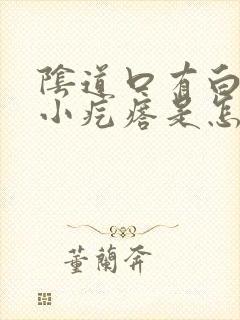 陰道口有白
小疙瘩是怎
董蘭奔